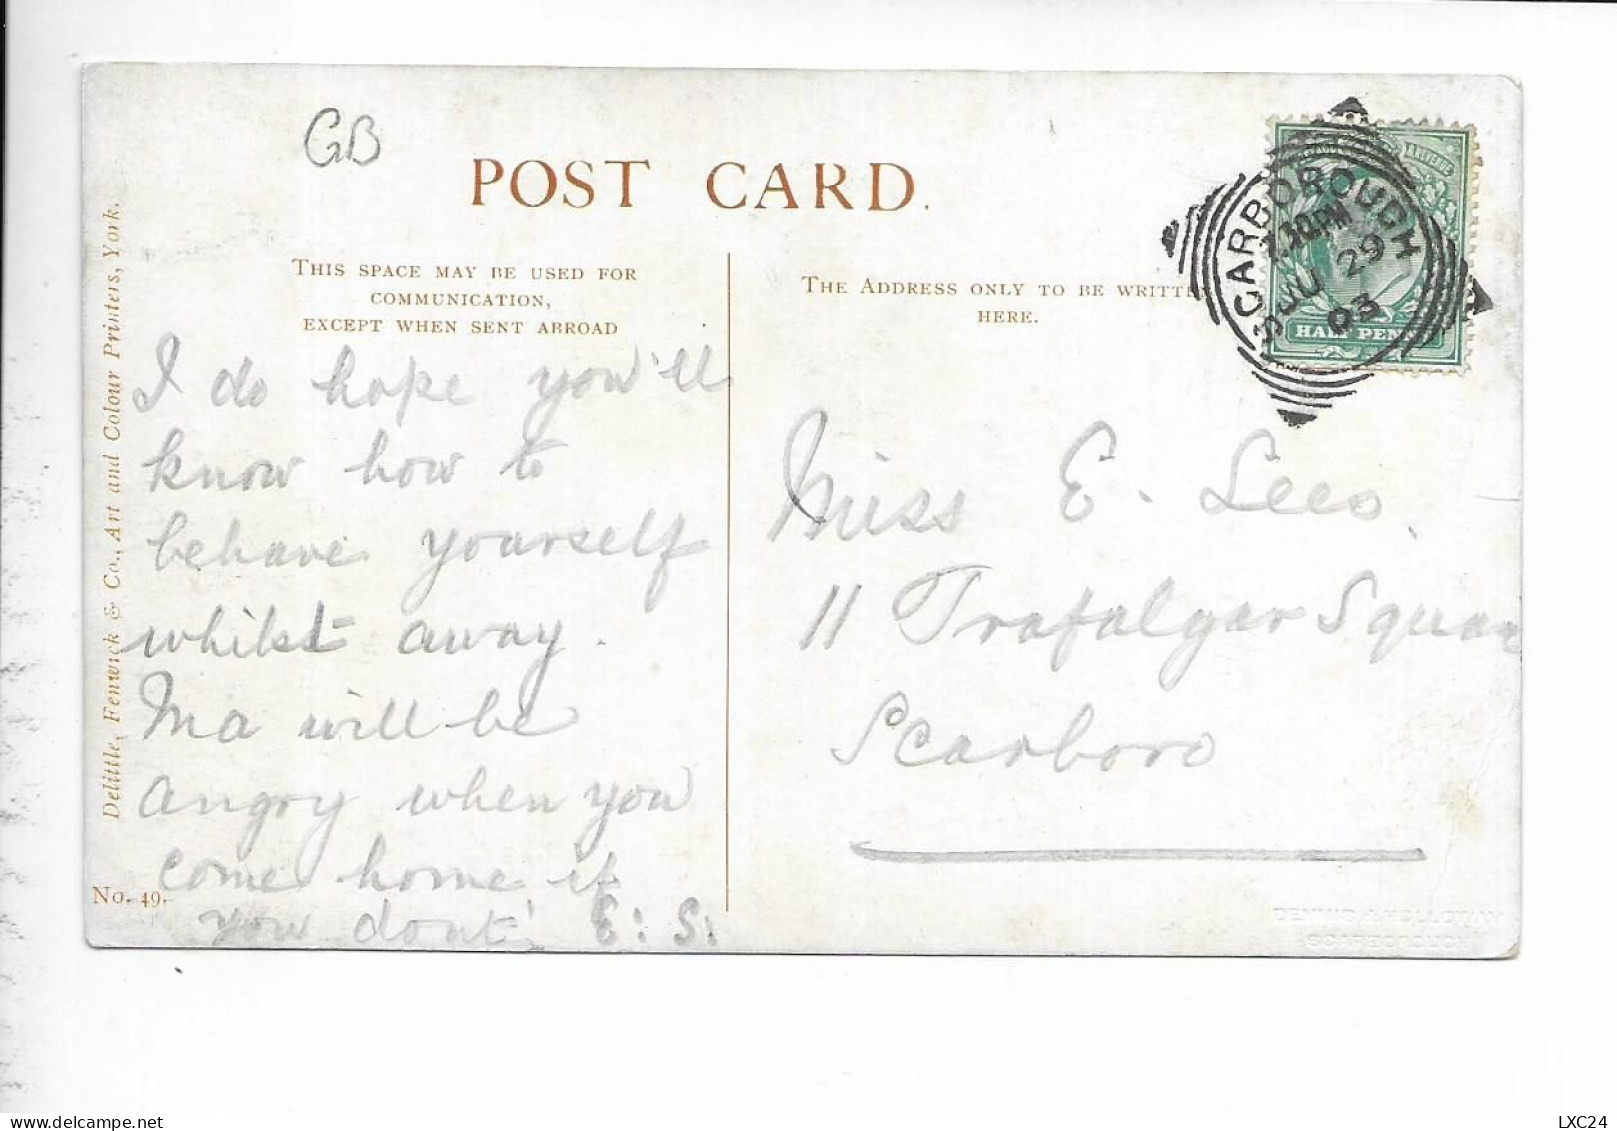 GB
POST CARD.
THIS SPACE MAY BE USED FOR
COMMUNICATION,
EXCEPT WHEN SENT ABROAD
I do hope you'll
know how to
behave yourself
whilst away.
Ma will be
angry when you
come home if
you dont! E: S:
Delittle, Fenwick & Co., Art and Colour Printers, York.
No. 49.
THE ADDRESS ONLY TO BE WRITTE
HERE.
SCARBOROUGH
7.30PM
JU 29
03
HALF PEN
& REVENUE
Miss E. Lees.
11 Trafalgar Square
Scarboro
DENNIS & HOLLOWAY
SCARBOROUGH
LXC24